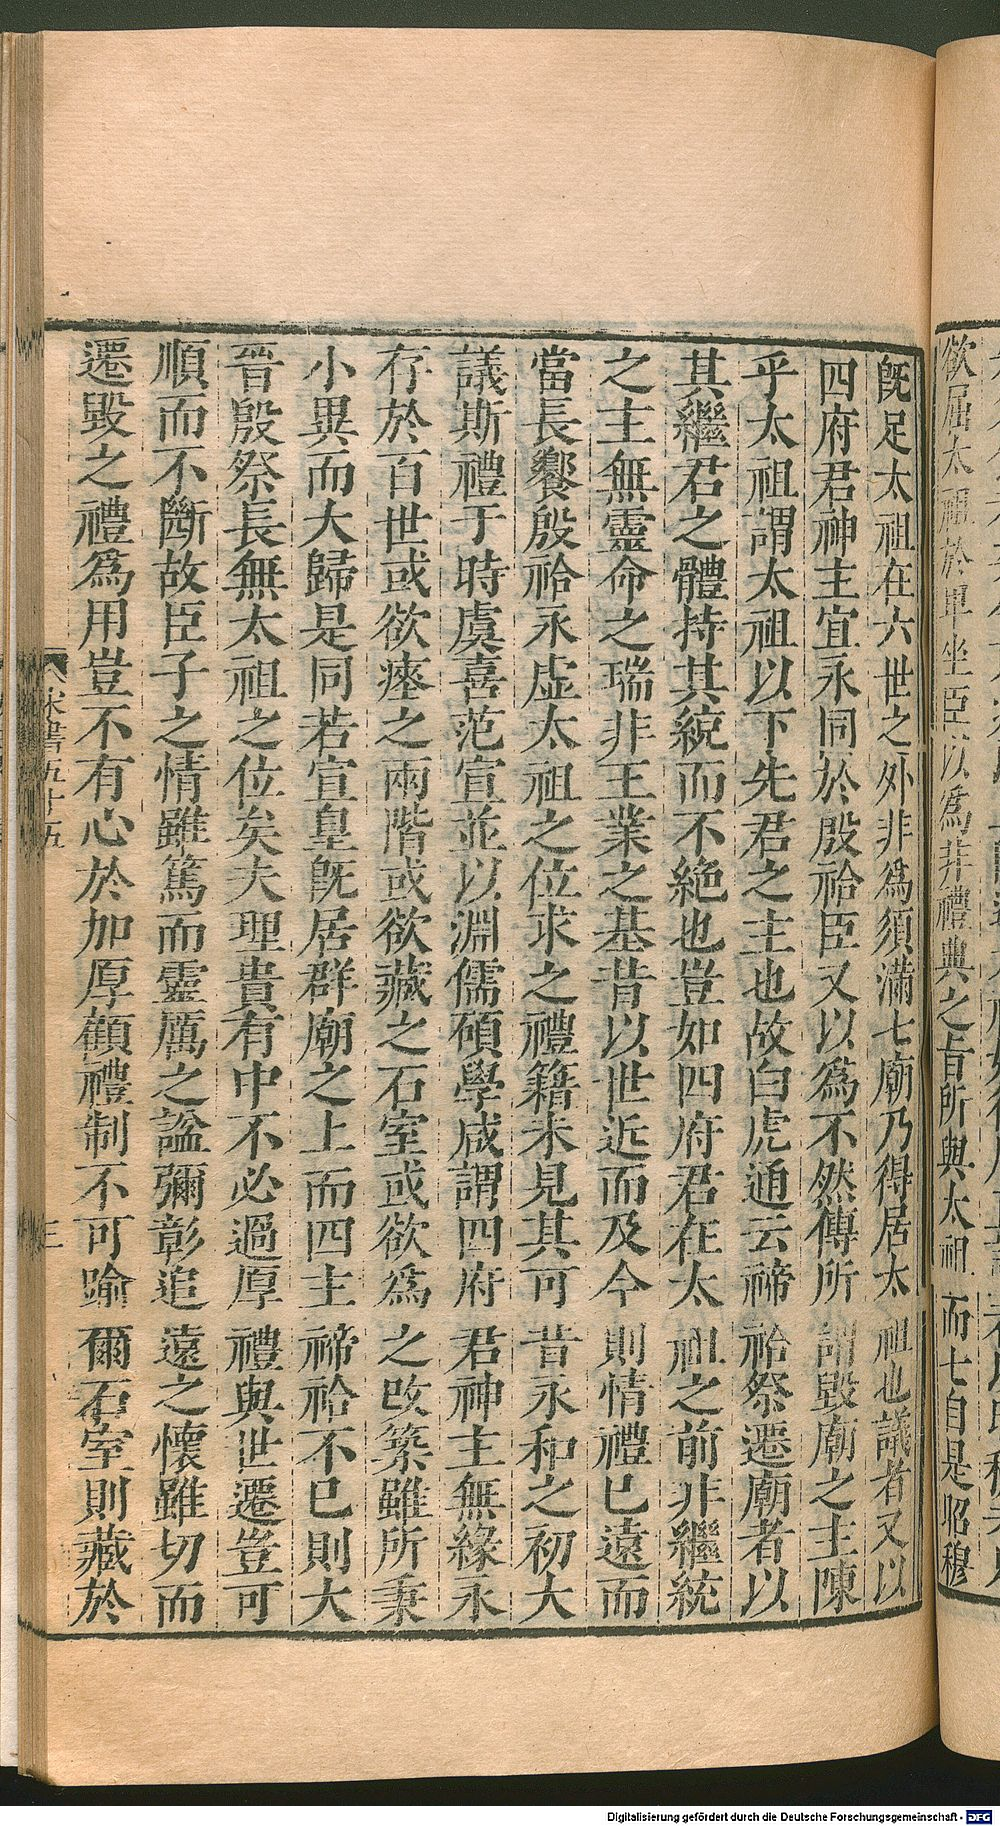 欲屈太祖於卑坐臣以爲非禮典之旨所與太祖而七自是昭穆
既足太祖在六世之外非爲須滿七廟乃得居太祖也議者又以
四府君神主宜永同於殷祫臣又以爲不然傳所謂毀廟之主陳
乎太祖謂太祖以下先君之主也故白虎通云禘祫祭遷廟者以
其繼君之體持其統而不絶也豈如四府君在太祖之前非繼統
之主無靈命之瑞非王業之基昔以世近而及今則情禮已遠而
當長饗殷祫永虛太祖之位求之禮籍未見其可昔永和之初大
議斯禮于時虞喜范宣並以淵儒碩學咸謂四府君神主無緣永
存於百世或欲瘞之兩階或欲藏之石室或欲爲之改築雖所秉
小異而大歸是同若宣皇既居群廟之上而四主禘祫不已則大
晉殷祭長無太祖之位矣夫理貴有中不必過厚禮與世遷豈可
順而不斷故臣子之情雖篤而靈厲之諡彌彰追遠之懷雖切而
遷毀之禮爲用豈不有心於加厚顧禮制不可踰爾石室則藏於
宋書五十五
三
Digitalisierung gefördert durch die Deutsche Forschungsgemeinschaft - DFG